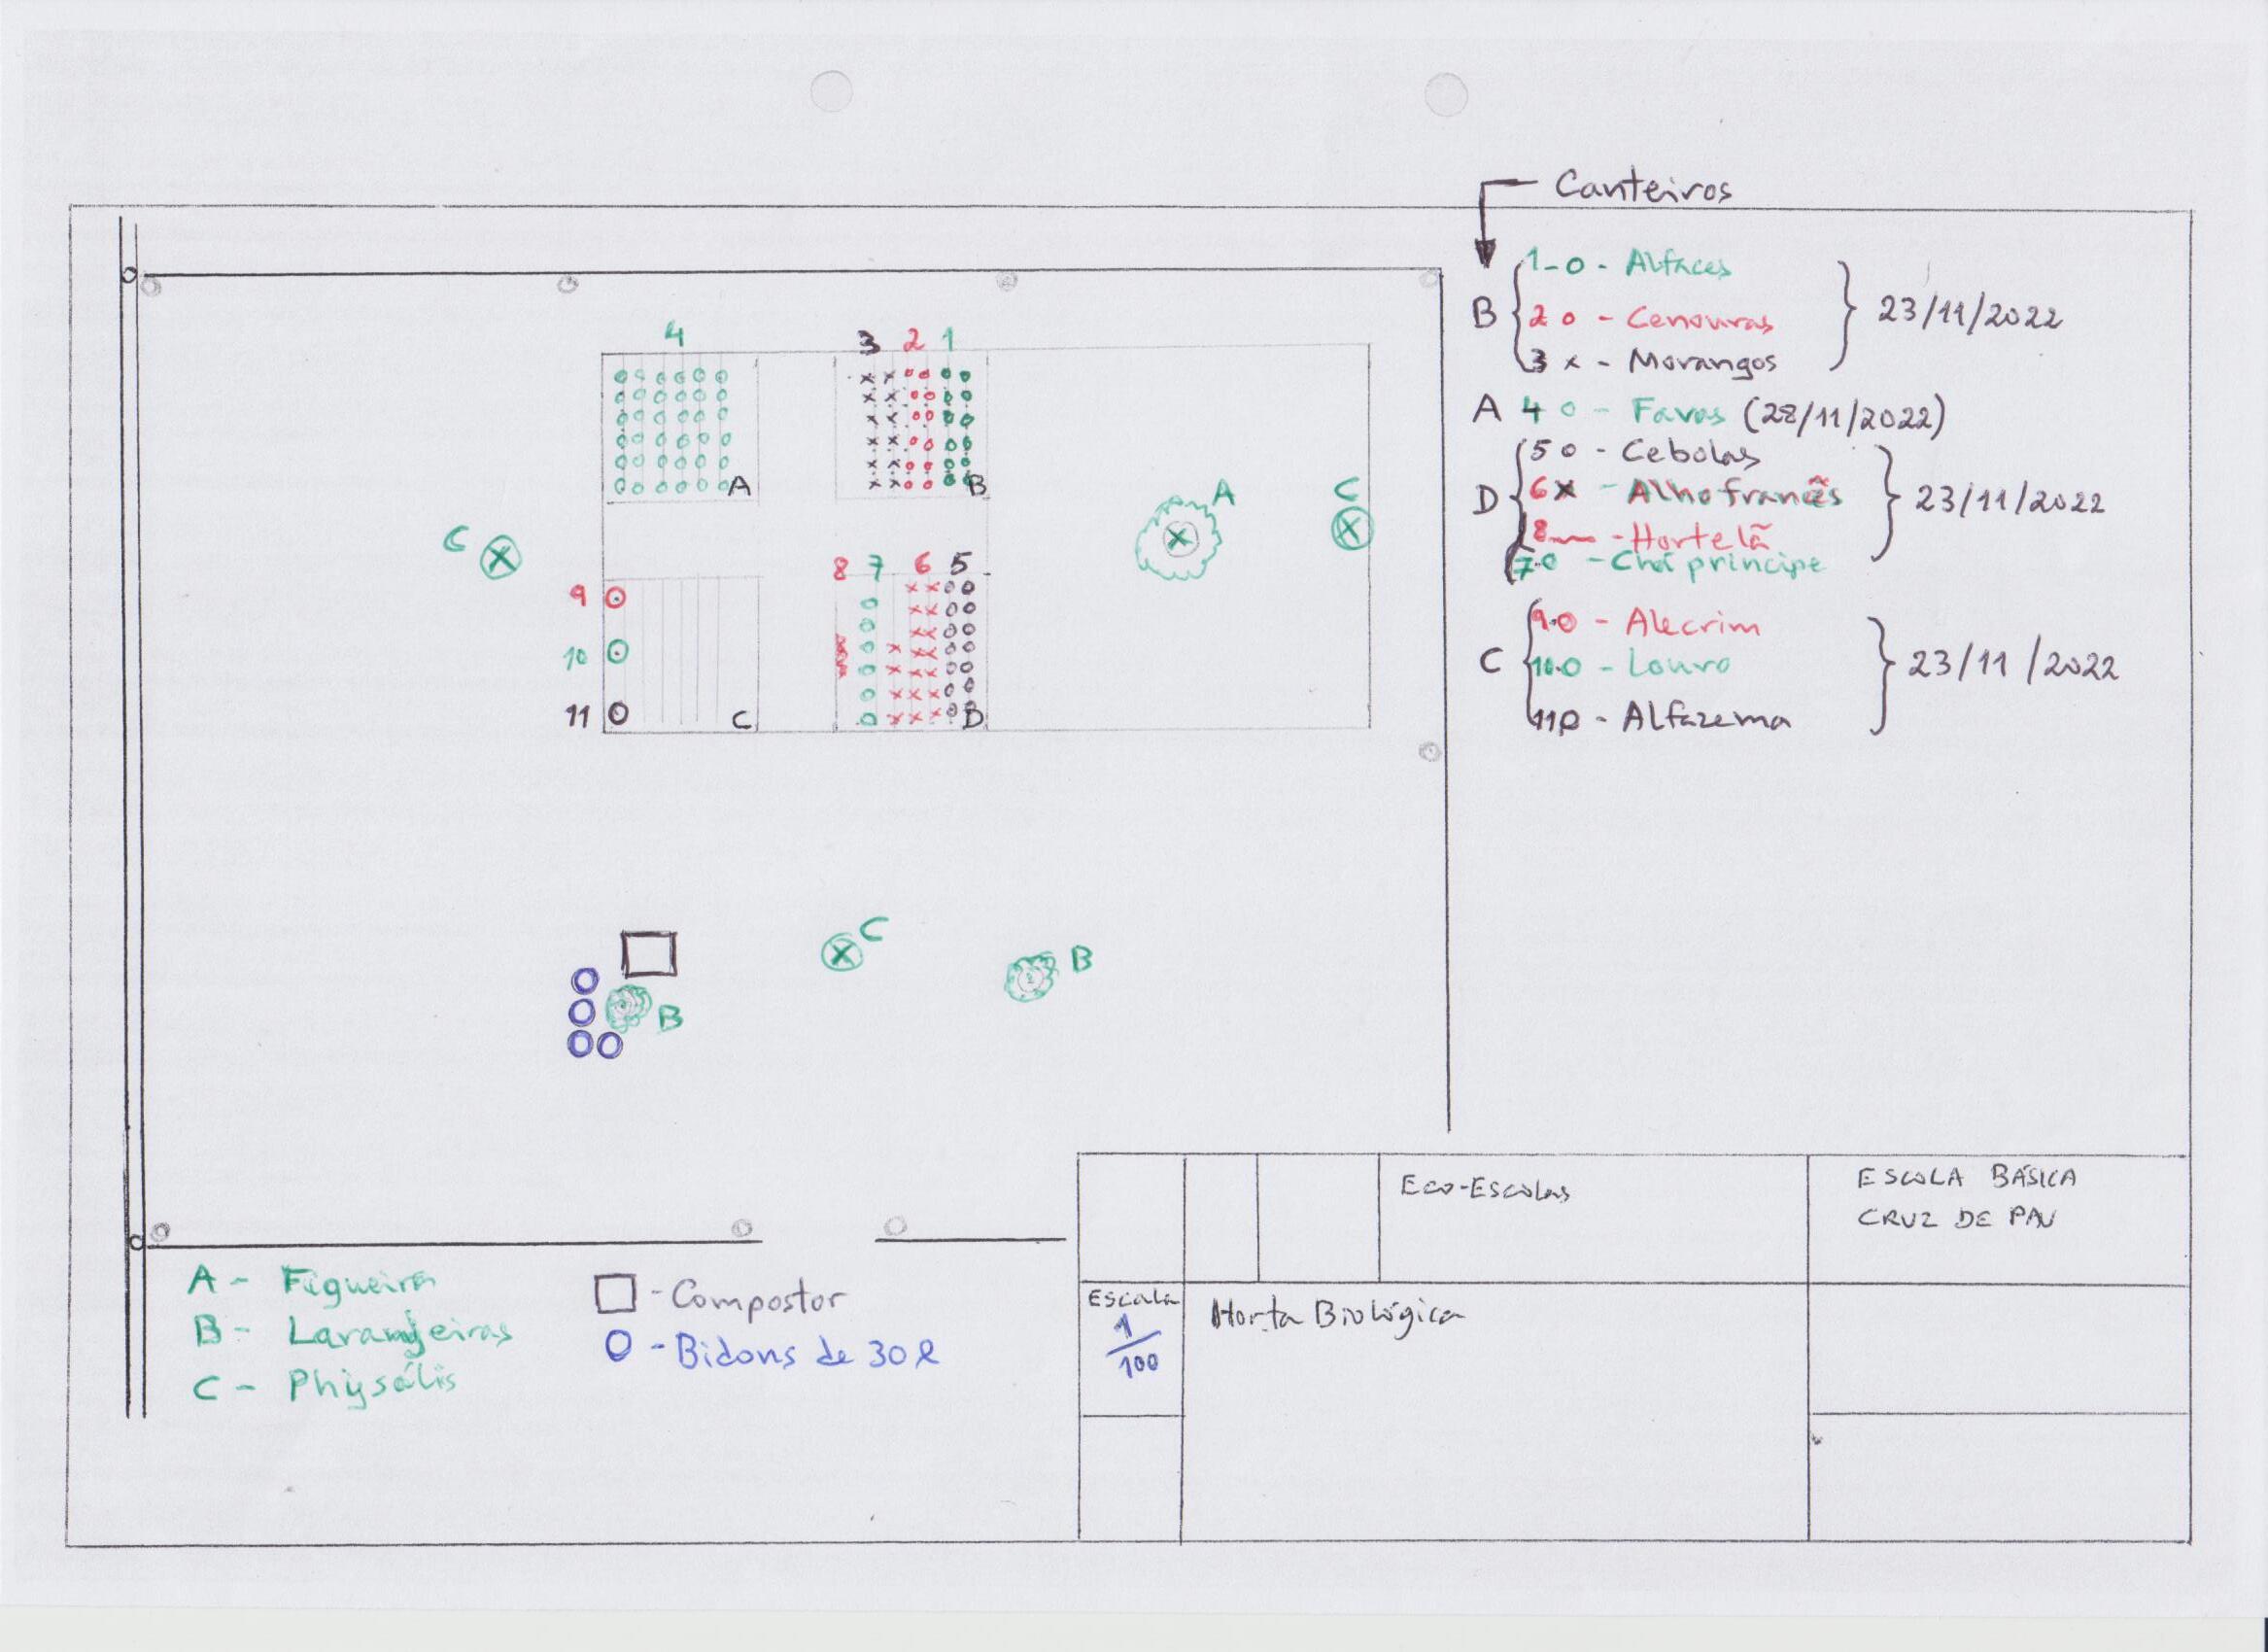 Canteiros
B
1-o - Alfaces
2 o - Cenouras
3 x - Morangos
23/11/2022
A 4 o - Favas (28/11/2022)
D
5 o - Cebolas
6 x - Alho francês
8 - Hortelã
7 o - Chá principe
23/11/2022
C
9 o - Alecrim
10 o - Louro
11 o - Alfazema
23/11/2022
4
3 2 1
A
B
A
C
C
8 7 6 5
9
10
11
C
D
C
B
B
A - Figueira
B - Laranjeiras
C - Physális
- Compostor
O - Bidons de 30 l
Eco-Escolas
ESCOLA BÁSICA
CRUZ DE PAU
Escala
1/100
Horta Biológica